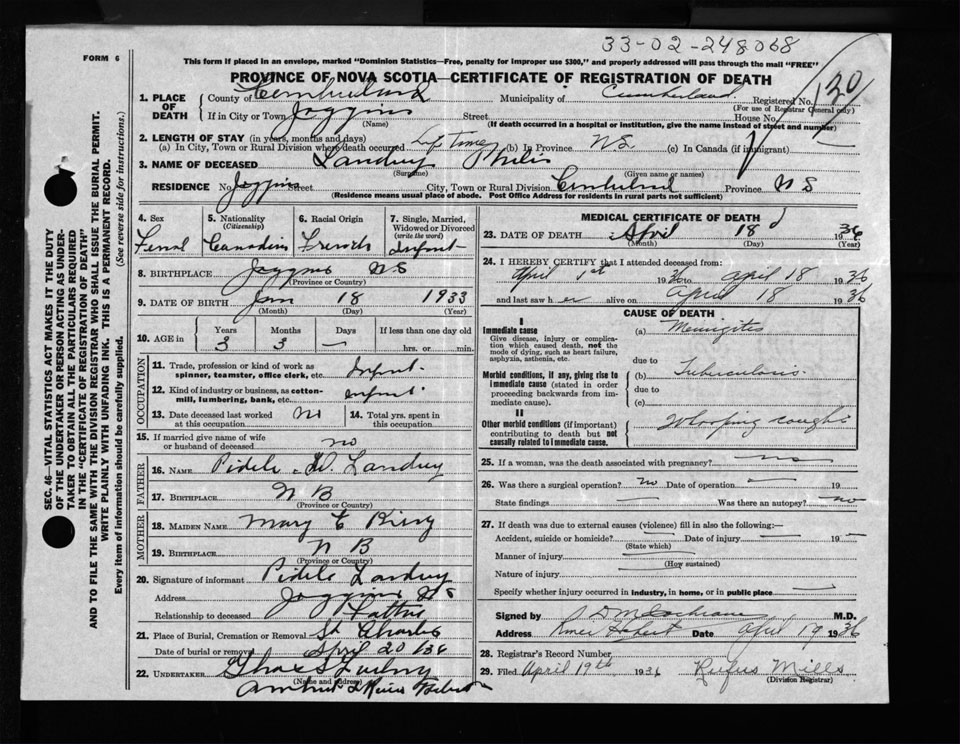 33-02-248068
FORM 6
This form if placed in an envelope, marked "Dominion Statistics—Free, penalty for improper use $300," and properly addressed will pass through the mail "FREE"
PROVINCE OF NOVA SCOTIA—CERTIFICATE OF REGISTRATION OF DEATH
120
1. PLACE OF DEATH
County of Cumberland Municipality of Cumberland Registered No.
(For use of Registrar General only)
If in City or Town Joggins Street House No.
(Name) (If death occurred in a hospital or institution, give the name instead of street and number)
2. LENGTH OF STAY (in years, months and days)
(a) In City, Town or Rural Division where death occurred Life Time (b) In Province NS (c) In Canada (if immigrant)
3. NAME OF DECEASED Landry
(Surname) (Given name or names)
RESIDENCE No. Joggins Street City, Town or Rural Division Cumberland Province N S
(Residence means usual place of abode. Post Office Address for residents in rural parts not sufficient)
4. Sex
5. Nationality (Citizenship)
6. Racial Origin
7. Single, Married, Widowed or Divorced (write the word)
Femal Canadian French Infant
8. BIRTHPLACE Joggins NS
(Province or Country)
9. DATE OF BIRTH Jan 18 1933
(Month) (Day) (Year)
10. AGE in Years Months Days If less than one day old
3 3 — hrs. or min.
OCCUPATION
11. Trade, profession or kind of work as spinner, teamster, office clerk, etc. Infant
12. Kind of industry or business, as cotton-mill, lumbering, bank, etc. infant
13. Date deceased last worked at this occupation
14. Total yrs. spent in this occupation
15. If married give name of wife or husband of deceased no
FATHER
16. NAME Landry
17. BIRTHPLACE N B
(Province or Country)
MOTHER
18. MAIDEN NAME Mary E
19. BIRTHPLACE N B
(Province or Country)
20. Signature of informant Landry
Address Joggins NS
Relationship to deceased Father
21. Place of Burial, Cremation or Removal St Charles
Date of burial or removal April 20/36
22. UNDERTAKER
(Name and address)
Amherst
MEDICAL CERTIFICATE OF DEATH
23. DATE OF DEATH April 18 1936
(Month) (Day) (Year)
24. I HEREBY CERTIFY that I attended deceased from:
April 1st 1936 to April 18 1936
and last saw h er alive on April 18 1936
CAUSE OF DEATH
I
Immediate cause
Give disease, injury or complication which caused death, not the mode of dying, such as heart failure, asphyxia, asthenia, etc.
(a) Meningitis
due to
Morbid conditions, if any, giving rise to immediate cause (stated in order proceeding backwards from immediate cause).
(b) Tuberculosis
due to
(c)
II
Other morbid conditions (if important) contributing to death but not causally related to immediate cause.
Whooping cough
25. If a woman, was the death associated with pregnancy? no
26. Was there a surgical operation? no Date of operation — 19
State findings — Was there an autopsy? no
27. If death was due to external causes (violence) fill in also the following:—
Accident, suicide or homicide? — Date of injury — 19 —
(State which)
Manner of injury
(How sustained)
Nature of injury
Specify whether injury occurred in industry, in home, or in public place —
Signed by Cochrane M.D.
Address River Hebert Date April 19 1936
28. Registrar's Record Number
29. Filed April 19th 1936 Rufus Mills
(Division Registrar)
SEC. 46—VITAL STATISTICS ACT MAKES IT THE DUTY
OF THE UNDERTAKER OR PERSON ACTING AS UNDER-
TAKER TO OBTAIN ALL THE PARTICULARS REQUIRED
IN THE "CERTIFICATE OF REGISTRATION OF DEATH"
AND TO FILE THE SAME WITH THE DIVISION REGISTRAR WHO SHALL ISSUE THE BURIAL PERMIT.
WRITE PLAINLY WITH UNFADING INK. THIS IS A PERMANENT RECORD.
Every item of information should be carefully supplied. (See reverse side for instructions.)